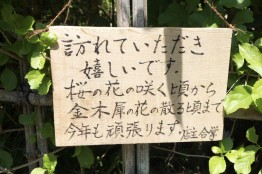 訪れていただき
嬉しいです。
桜の花の咲く頃から
金木犀の花の散る頃まで
今年も頑張ります。